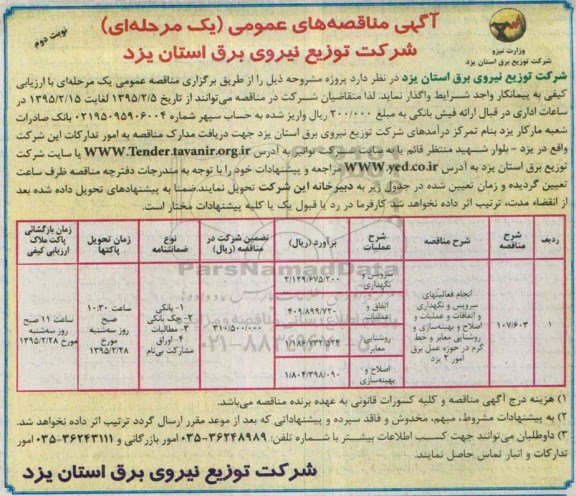 آگهی مناقصه‌های عمومی (یک مرحله‌ای)
شرکت توزیع نیروی برق استان یزد
نوبت دوم
وزارت نیرو
شرکت توزیع نیروی برق استان یزد
شرکت توزیع نیروی برق استان یزد در نظر دارد پروژه مشروحه ذیل را از طریق برگزاری مناقصه عمومی یک مرحله‌ای با ارزیابی
کیفی به پیمانکار واجد شرایط واگذار نماید. لذا متقاضیان شرکت در مناقصه می‌توانند از تاریخ ۱۳۹۵/۲/۵ لغایت ۱۳۹۵/۲/۱۵ در
ساعات اداری در قبال ارائه فیش بانکی به مبلغ ۲۰۰/۰۰۰ ریال واریز شده به حساب سپهر شماره ۰۲۱۹۵۰۹۵۹۰۶۰۰۴ بانک صادرات
شعبه مارکار یزد بنام تمرکز درآمدهای شرکت توزیع نیروی برق استان یزد جهت دریافت مدارک مناقصه به امور تدارکات این شرکت
واقع در یزد - بلوار شهید منتظر قائم یا به سایت شرکت توانیر به آدرس WWW.Tender.tavanir.org.ir یا سایت شرکت
توزیع برق استان یزد به آدرس WWW.yed.co.ir مراجعه و پیشنهادات خود را با توجه به مندرجات دفترچه مناقصه ظرف ساعت
تعیین گردیده و زمان تعیین شده در جدول زیر به دبیرخانه این شرکت تحویل نمایند.ضمناً به پیشنهادهای تحویل داده شده بعد
از انقضاء مدت، ترتیب اثر داده نخواهد شد. کارفرما در رد یا قبول یک یا کلیه پیشنهادات مختار است.
ردیف | شرح مناقصه | شرح مناقصه | شرح عملیات | برآورد (ریال) | تضمین شرکت در مناقصه (ریال) | نوع ضمانتنامه | زمان تحویل پاکتها | زمان بازگشائی پاکت ملاک ارزیابی کیفی
۱ | ۱۰۷/۶۰۳ | انجام فعالیتهای سرویس و نگهداری و اتفاقات و عملیات و اصلاح و بهینه‌سازی و روشنایی معابر و خط گرم در حوزه عمل برق امور ۲ یزد
سرویس و نگهداری | ۳/۱۲۹/۶۷۵/۲۰۰
اتفاق و عملیات | ۴۰۹/۸۹۹/۷۲۰
روشنایی معابر | ۱/۱۸۶/۷۳۲/۵۲۴
اصلاح و بهینه‌سازی | ۱/۸۰۴/۳۹۸/۰۹۰
۳۱۰/۵۰۰/۰۰۰
۱- بانکی
۲- چک بانکی
۳- مطالبات
۴- اوراق مشارکت بی‌نام
ساعت ۱۰:۳۰ صبح روز سه‌شنبه مورخ ۱۳۹۵/۲/۲۸
ساعت ۱۱ صبح روز سه‌شنبه مورخ ۱۳۹۵/۲/۲۸
ParsNamadData
۱) هزینه درج آگهی مناقصه و کلیه کسورات قانونی به عهده برنده مناقصه می‌باشد.
۲) به پیشنهادات مشروط، مبهم، مخدوش و فاقد سپرده و پیشنهاداتی که بعد از موعد مقرر ارسال گردد ترتیب اثر داده نخواهد شد.
۳) داوطلبان می‌توانند جهت کسب اطلاعات بیشتر با شماره تلفن: ۳۶۲۴۸۹۸۹-۰۳۵ امور بازرگانی و ۳۶۲۴۳۱۱۱-۰۳۵ امور
تدارکات و انبار تماس حاصل نمایند.
شرکت توزیع نیروی برق استان یزد